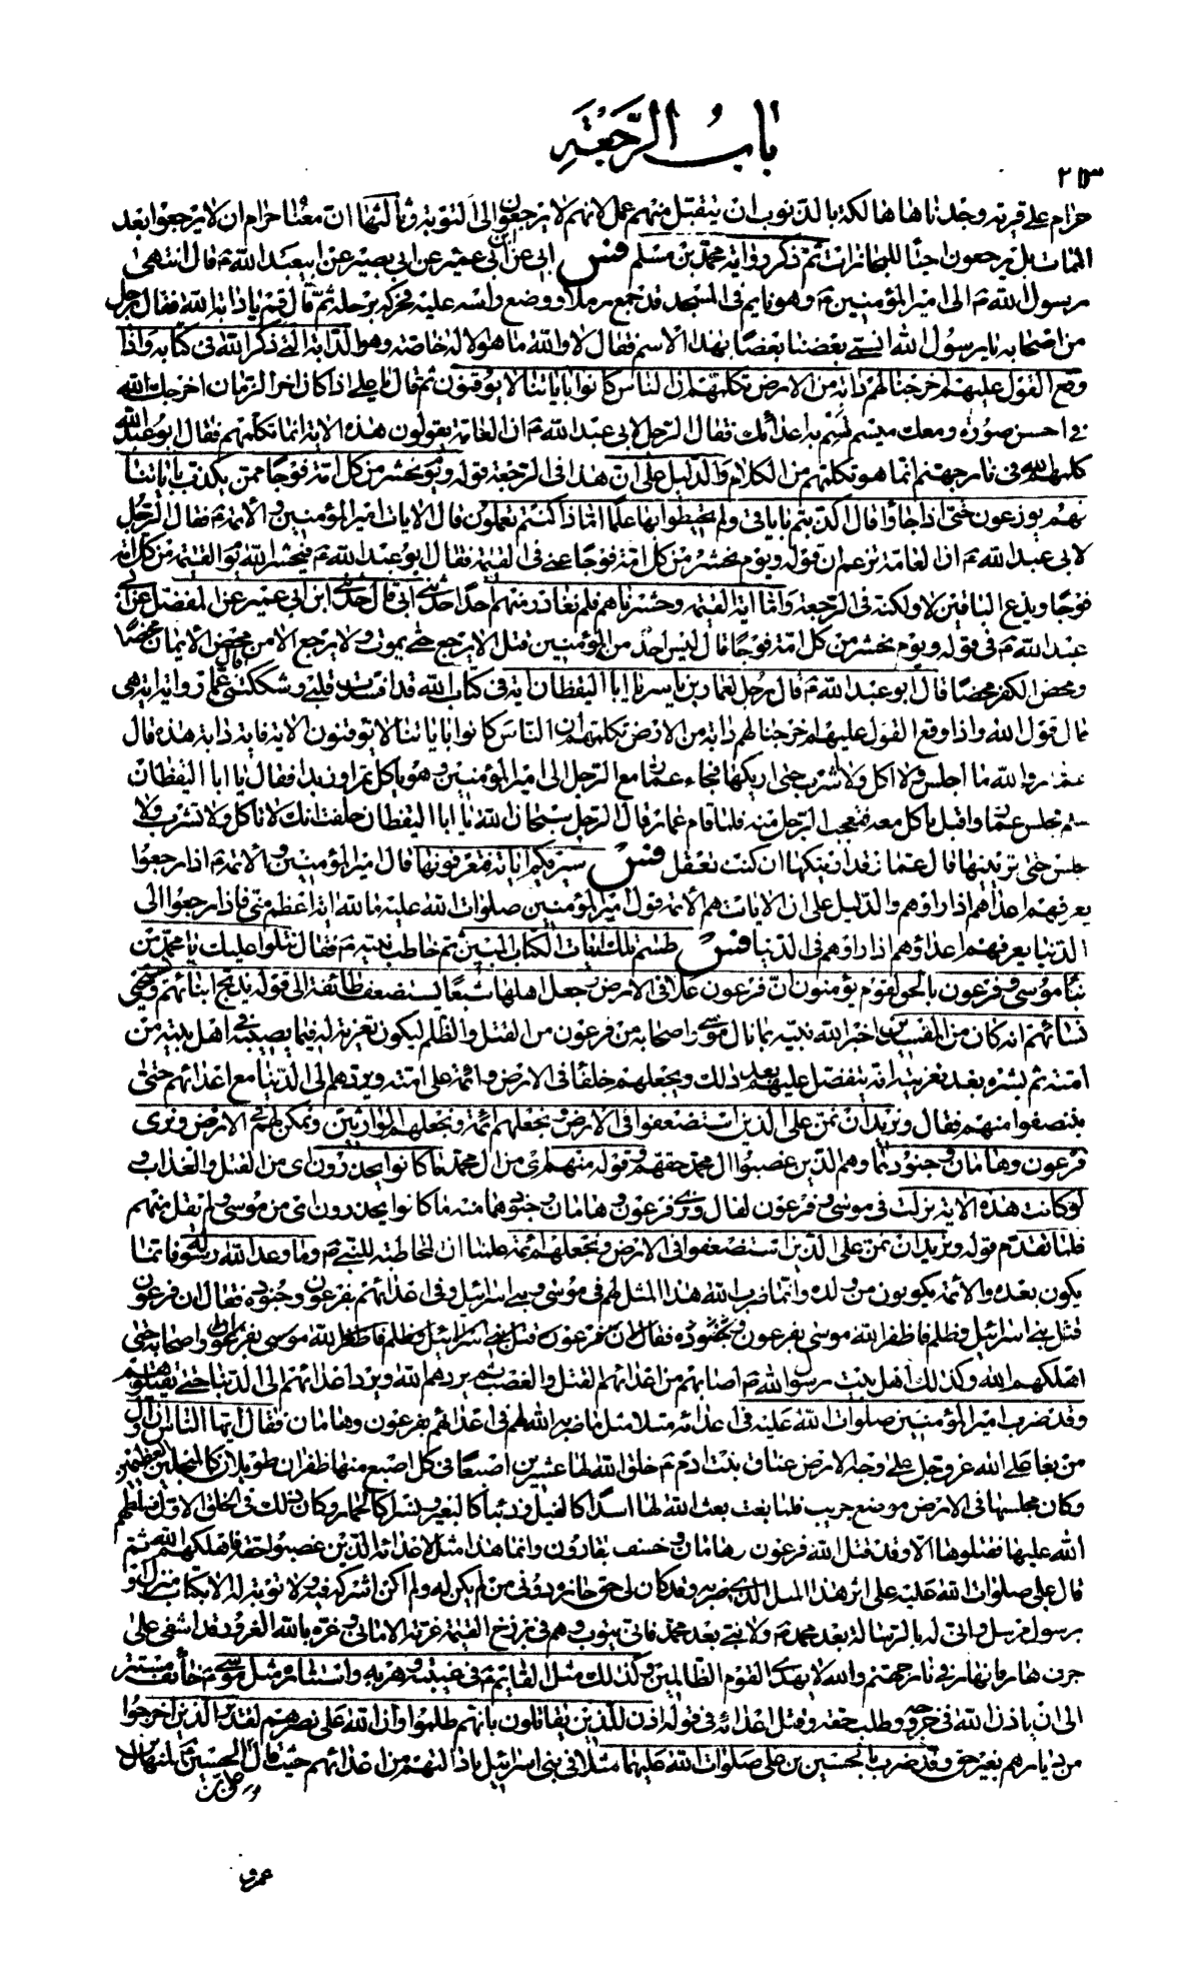 باب الرجعة
٢٥٣
حرام على قرية وجدناها هالكة بالذنوب ان يتقبل منهم عمل لانهم لا يرجعون الى التوبة وثالثها ان معناه حرام ان لا يرجعوا بعد
الممات بل يرجعون احياء للمجازات ثم ذكر رواية محمد بن مسلم فس ابى عن ابن ابى عمير عن ابى بصير عن ابيعبد الله ع قال انتهى
رسول الله ص الى امير المؤمنين ع وهو نايم فى المسجد قد جمع رملا ووضع راسه عليه فحركه برجله ثم قال قم يا دابة الله فقال رجل
من اصحابه يا رسول الله ايسمى بعضنا بعضا بهذا الاسم فقال لا والله ما هو الا له خاصة وهو الدابة التى ذكر الله فى كتابه واذا
وقع القول عليهم اخرجنا لهم دابة من الارض تكلمهم ان الناس كانوا باياتنا لا يوقنون ثم قال يا على اذا كان اخر الزمان اخرجك الله
فى احسن صورة ومعك ميسم تسم به اعدائك فقال الرجل لابى عبد الله ع ان العامة يقولون هذه الاية انما تكلمهم فقال ابو عبد الله
كلمهم الله فى نار جهنم انما هو تكلمهم من الكلام والدليل على ان هذا فى الرجعة قوله ويوم نحشر من كل امة فوجا ممن يكذب باياتنا
فهم يوزعون حتى اذا جاؤا قال اكذبتم باياتى ولم تحيطوا بها علما اماذا كنتم تعملون قال الايات امير المؤمنين والأئمة ع فقال الرجل
لابى عبد الله ع ان العامة تزعم ان قوله ويوم نحشر من كل امة فوجا عنى فى القيمة فقال ابو عبد الله ع فيحشر الله يوم القيمة من كل امة
فوجا ويدع الباقين لا ولكنه فى الرجعة واما اية القيمة وحشرناهم فلم نغادر منهم احدا حدثنى ابى قال حدثنى ابن ابى عمير عن المفضل عن ابى
عبد الله ع فى قوله ويوم نحشر من كل امة فوجا قال ليس احد من المؤمنين قتل الا يرجع حتى يموت ولا يرجع الا من محض الأيمان محضا
ومحض الكفر محضا قال ابو عبد الله ع قال رجل لعمار بن ياسر يا ابا اليقظان اية فى كتاب الله قد افسدت قلبى وشككتنى قال عمار واية اية هى
قال قول الله واذا وقع القول عليهم اخرجنا لهم دابة من الارض تكلمهم ان الناس كانوا باياتنا لا يوقنون الاية فاية دابة هذه قال
عمار والله ما اجلس ولا اكل ولا اشرب حتى اريكها فجاء عمار مع الرجل الى امير المؤمنين وهو ياكل تمرا وزبدا فقال يا ابا اليقظان
هلم فجلس عمار واقبل ياكل معه فتعجب الرجل منه فلما قام عمار قال الرجل سبحان الله يا ابا اليقظان حلفت انك لا تاكل ولا تشرب ولا
تجلس حتى ترينيها قال عمار قد اريتكها ان كنت تعقل فس سيريكم اياته فتعرفونها قال امير المؤمنين والائمة ع اذا رجعوا
يعرفهم اعداؤهم اذا راوهم والدليل على ان الايات هم الأئمة قول امير المؤمنين صلوات الله عليه ما لله اية اعظم منى فاذا رجعوا الى
الدنيا يعرفهم اعداؤهم اذا راوهم فى الدنيا فس طسم تلك ايات الكتاب المبين ثم خاطب نبيه ص فقال نتلوا عليك يا محمد من
نبأ موسى وفرعون بالحق لقوم يؤمنون ان فرعون علا فى الارض وجعل اهلها شيعا يستضعف طائفة الى قوله يذبح ابنائهم ويستحيى
نسائهم انه كان من المفسدين اخبر الله نبيه بما نال موسى واصحابه من فرعون من القتل والظلم ليكون تعزية له فيما يصيبه فى اهل بيته من
امته ثم بشره بعد تعزيته انه يتفضل عليهم بعد ذلك ويجعلهم خلفاء فى الارض وائمة على امته ويردهم الى الدنيا مع اعدائهم حتى
ينتصفوا منهم فقال ونريد ان نمن على الذين استضعفوا فى الارض ونجعلهم ائمة ونجعلهم الوارثين ونمكن لهم فى الارض ونرى
فرعون وهامان وجنودهما وهم الذين غصبوا ال محمد حقهم وقوله منهم اى من ال محمد ما كانوا يحذرون اى من القتل والعذاب و
لو كانت هذه الاية نزلت فى موسى وفرعون لقال ونرى فرعون وهامان وجنودهما منه ما كانوا يحذرون اى من موسى ولم يقل منهم
فلما تقدم قوله ونريد ان نمن على الذين استضعفوا فى الارض ونجعلهم ائمة علمنا ان المخاطبة للنبى ص وما وعد الله رسوله فانما
يكون بعده والائمة يكونون من ولده وانما ضرب الله هذا المثل لهم فى موسى وبنى اسرائيل وفى اعدائهم بفرعون وجنوده فقال ان فرعون
قتل بنى اسرائيل وظلم فاظفر الله موسى بفرعون وبجنوده فقال ان فرعون قتل بنى اسرائيل وظلم فاظفر الله موسى بفرعون واصحابه حتى
اهلكهم الله وكذلك اهل بيت رسول الله ص اصابهم من اعدائهم القتل والغصب ثم يردهم الله ويرد اعدائهم الى الدنيا حتى يقتلوهم
وقد ضرب امير المؤمنين صلوات الله عليه فى اعدائه مثلا مثل ما ضربه الله لهم فى اعدائهم بفرعون وهامان فقال ايها الناس ان اول
من بغا على الله عز وجل على وجه الارض عناق بنت ادم ع خلق الله لها عشرين اصبعا فى كل اصبع منها ظفران طويلان كالمنجلين العظيمين
وكان مجلسها فى الارض موضع جريب فلما بغت بعث الله لها اسدا كالفيل وذئبا كالبعير ونسرا كالحمار وكان ذلك فى الخلق الاول فسلطهم
الله عليها فقتلوها الا وقد قتل الله فرعون وهامان وخسف بقارون وانما هذا مثل لاعدائه الذين غصبوا حقه فاهلكهم الله ثم
قال على صلوات الله عليه على اثر هذا المثل الذى ضربه وقد كان لى حق حازه دونى من لم يكن له ولم اكن اشركه فيه ولا توبة له الا بكتاب منزل او
برسول مرسل وانى له بالرسالة بعد محمد ص ولا نبى بعد محمد فانى يتوب وهم فى برزخ القيمة غرته الامانى وغره بالله الغرور قد اشفى على
جرف هار فانهار به فى نار جهنم والله لا يهدى القوم الظالمين وكذلك مثل القايم ع فى غيبته وهربه واستتاره مثل موسى ع خائف مستتر
الى ان ياذن الله فى خروجه وطلب حقه وقتل اعدائه فى قوله اذن للذين يقاتلون بانهم ظلموا وان الله على نصرهم لقدير الذين اخرجوا
من ديارهم بغير حق وقد ضرب بالحسين بن على صلوات الله عليهما مثلا فى بنى اسرائيل باذالتهم من اعدائهم حيث قال الحسين لمنهال
عمرو